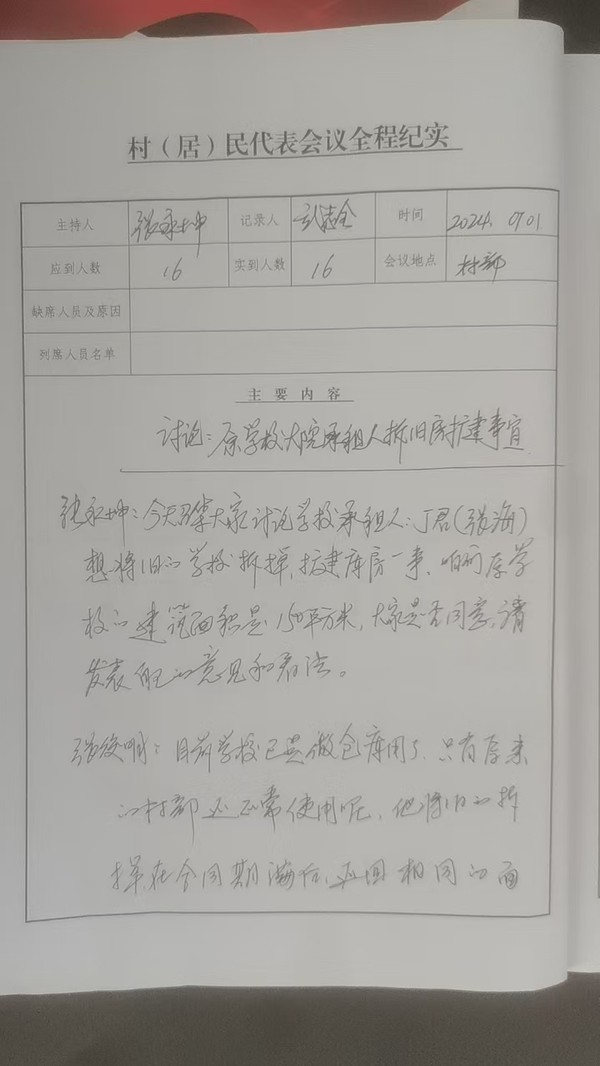 村（居）民代表会议全程纪实
主持人 张永坤 记录人 武志全 时间 2024.07.01
应到人数 16 实到人数 16 会议地点 村部
缺席人员及原因
列席人员名单
主要内容
讨论：原学校大院承租人拆旧房扩建事宜
张永坤：今天召集大家讨论学校承租人：丁君（张海）
想将旧的学校拆掉，扩建库房一事，咱们原学
校的建筑面积是150平方米，大家是否同意，请
发表自己的意见和看法。
张俊明：目前学校已是做仓库用了，只有原来
的村部还正常使用呢，他将旧的拆
掉，在合同期满后，返回相同的面